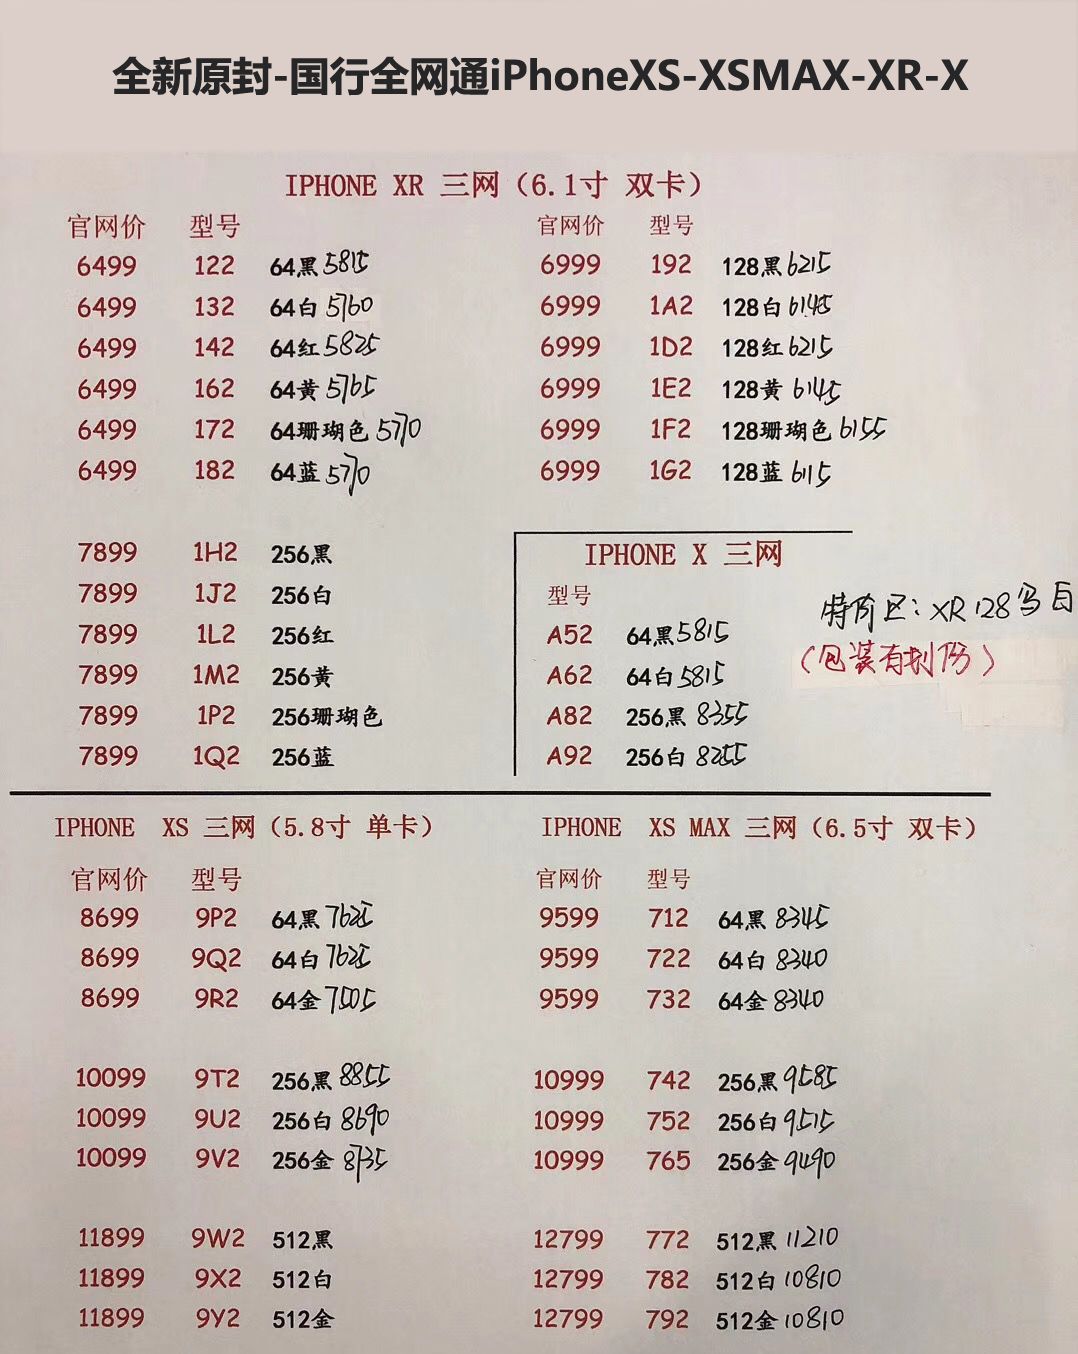 全新原封-国行全网通iPhoneXS-XSMAX-XR-X
IPHONE XR 三网（6.1寸 双卡）
官网价 型号
6499 122 64黑 5815
6499 132 64白 5760
6499 142 64红 5825
6499 162 64黄 5765
6499 172 64珊瑚色 5770
6499 182 64蓝 5770
官网价 型号
6999 192 128黑 6215
6999 1A2 128白 6145
6999 1D2 128红 6215
6999 1E2 128黄 6145
6999 1F2 128珊瑚色 6155
6999 1G2 128蓝 6115
7899 1H2 256黑
7899 1J2 256白
7899 1L2 256红
7899 1M2 256黄
7899 1P2 256珊瑚色
7899 1Q2 256蓝
IPHONE X 三网
型号
A52 64黑 5815
A62 64白 5815
A82 256黑 8355
A92 256白 8255
特价区：XR 128 白
（包装有划伤）
IPHONE XS 三网（5.8寸 单卡）
官网价 型号
8699 9P2 64黑 7625
8699 9Q2 64白 7625
8699 9R2 64金 7505
10099 9T2 256黑 8855
10099 9U2 256白 8690
10099 9V2 256金 8735
11899 9W2 512黑
11899 9X2 512白
11899 9Y2 512金
IPHONE XS MAX 三网（6.5寸 双卡）
官网价 型号
9599 712 64黑 8345
9599 722 64白 8340
9599 732 64金 8340
10999 742 256黑 9585
10999 752 256白 9515
10999 765 256金 9490
12799 772 512黑 11210
12799 782 512白 10810
12799 792 512金 10810